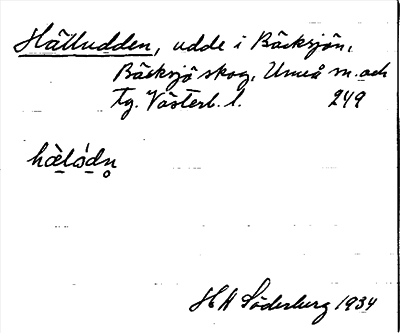 Hälludden, udde i Bäcksjön,
Bäcksjö skog, Umeå sn. och
tg. Västerb. l. 249
hàlúdn̥
H A Söderberg 1934